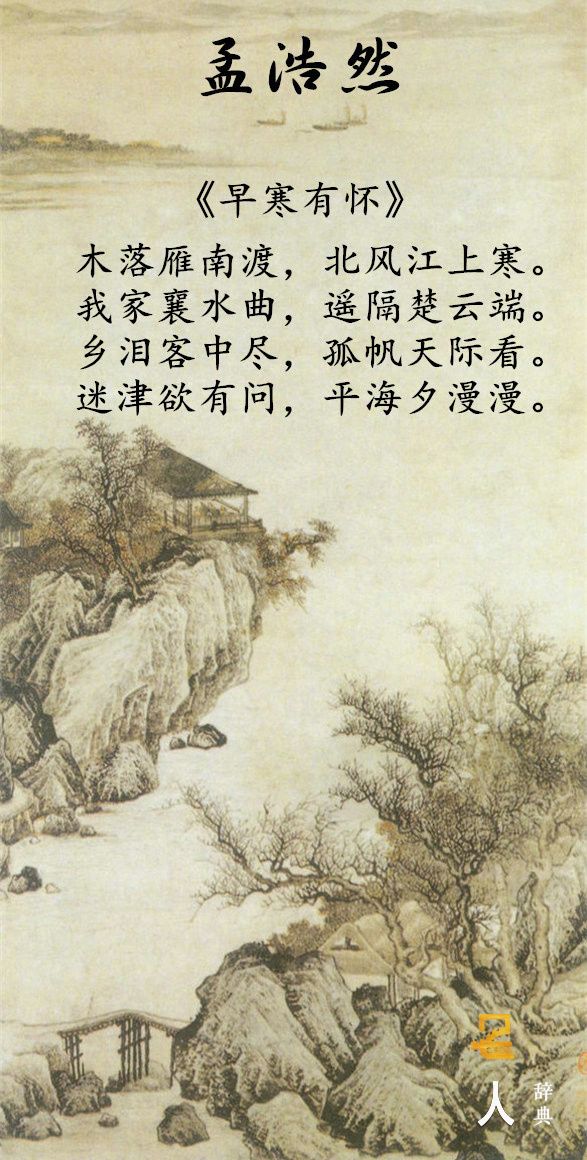 孟浩然
《早寒有怀》
木落雁南渡，北风江上寒。
我家襄水曲，遥隔楚云端。
乡泪客中尽，孤帆天际看。
迷津欲有问，平海夕漫漫。
名人
辞典